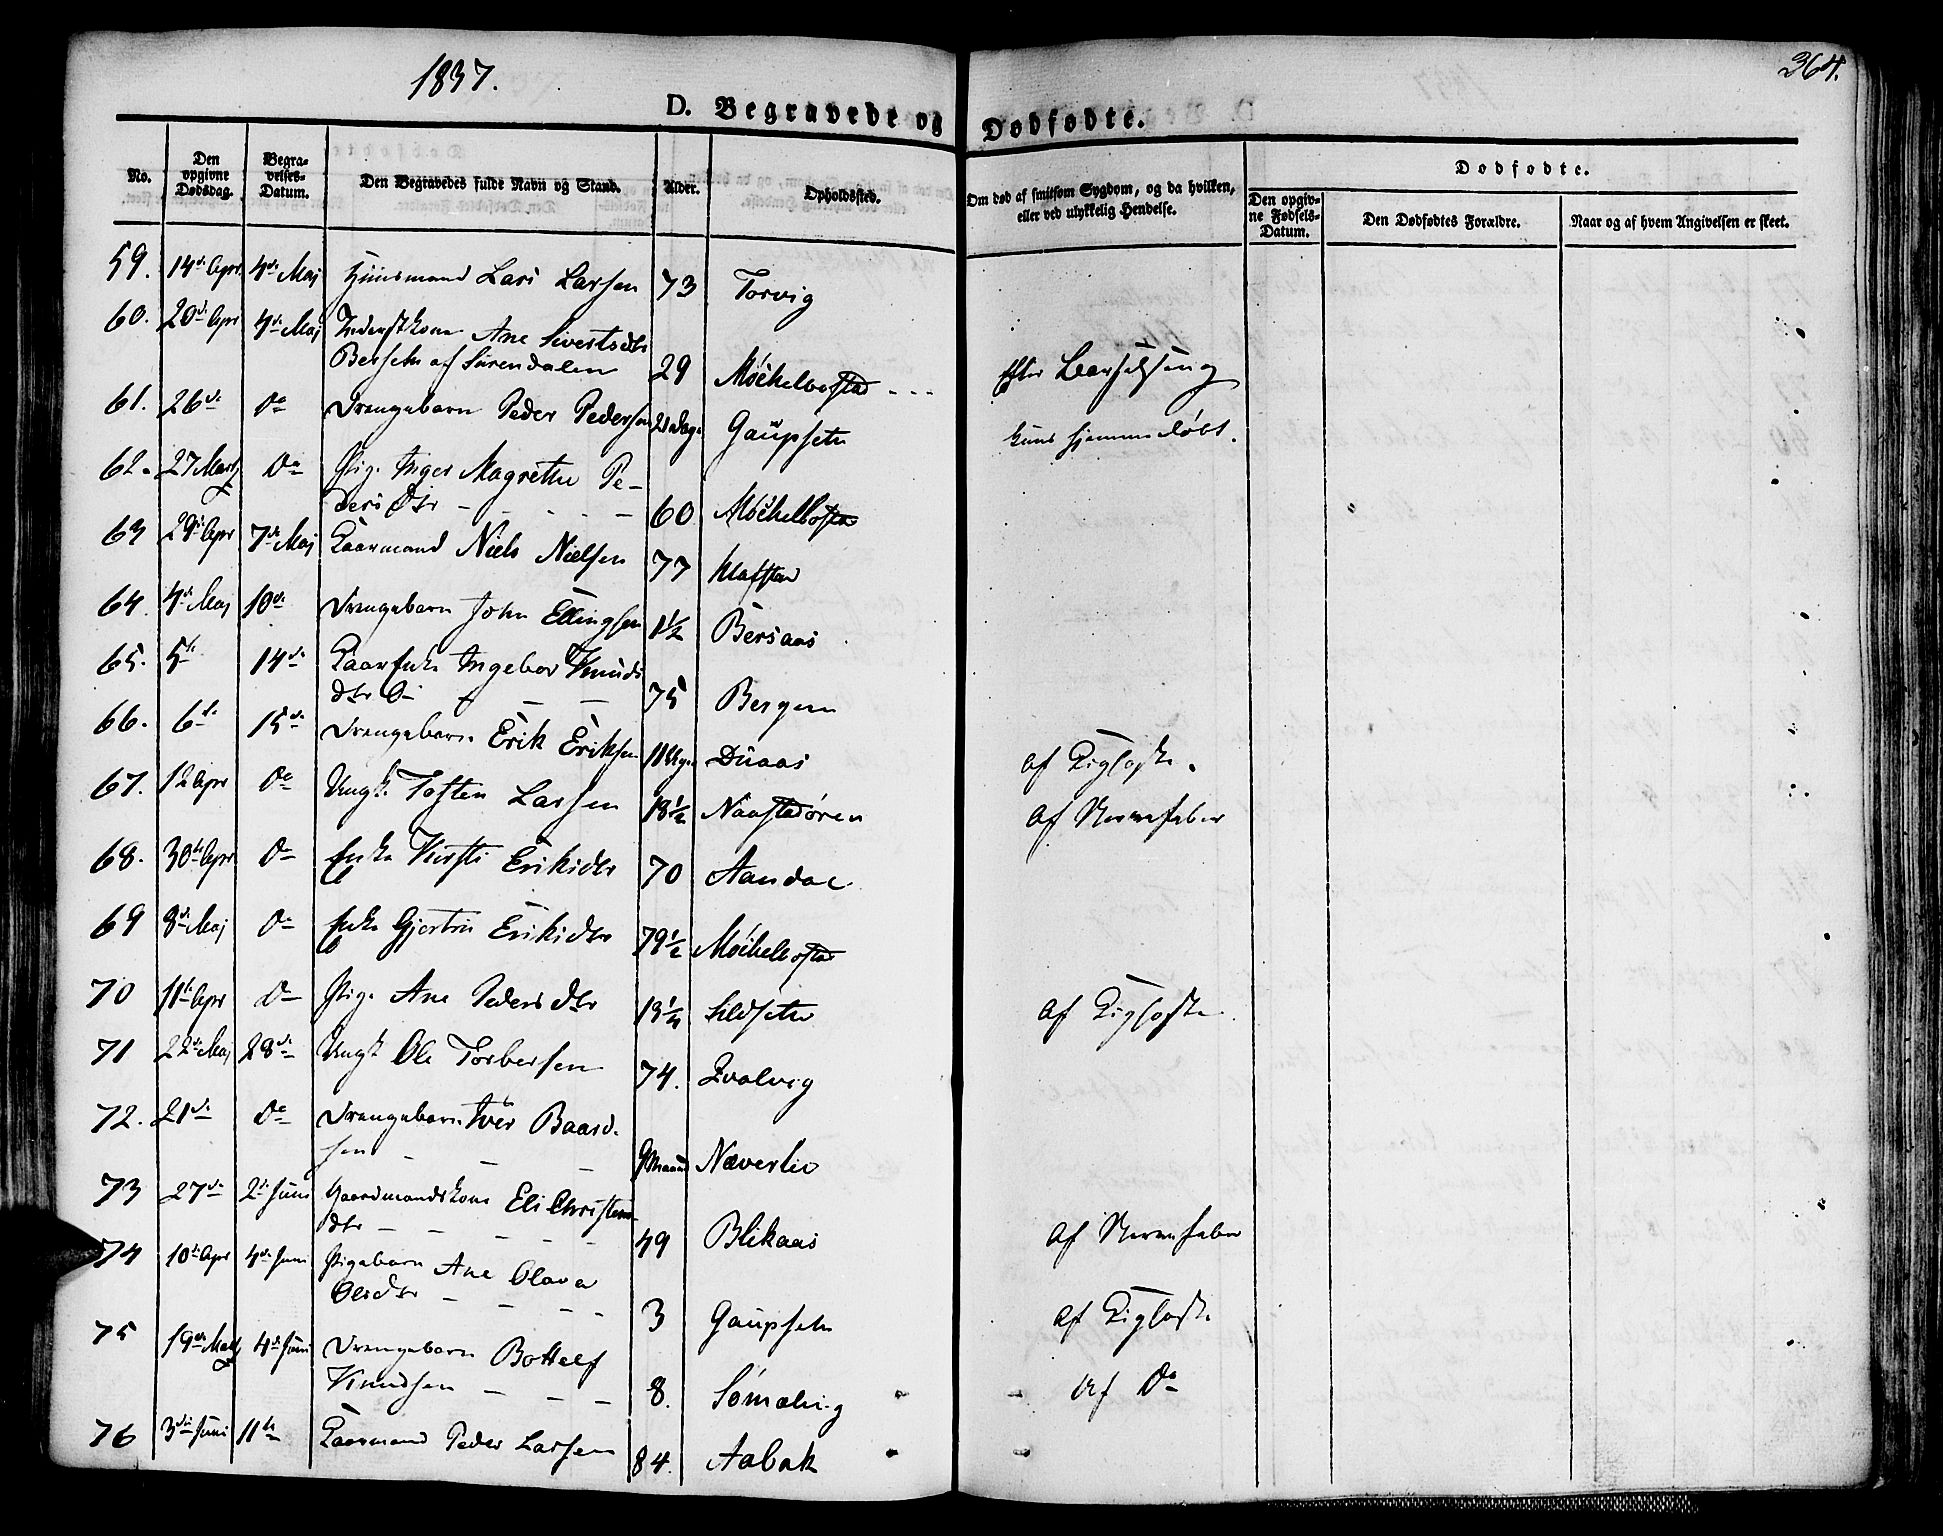 1837.
364.
D. Begravede og Dødfødte.
No.
Den opgivne Dødsdag.
Begravelses-Datum.
Den Begravedes fulde Navn og Stand.
Alder.
Opholdssted.
Om død af smitsom Sygdom, og da hvilken, eller ved ulykkelig Hendelse.
Dødfødte.
Den opgivne Fødsels-Datum.
Den Dødfødtes Forældre.
Naar og af hvem Angivelsen er skeet.
59. 14de Apr 4de Maj Huusmand Lars Larsen 73 Torvig
60. 20de Apr 4de Maj Inderstkone Ane Sivertsdtr
Berset af Surendalen 29 Møchelbostad - - - efter Barselseng
61. 26de do Drengebarn Peder Pedersen 21 Dage Gaupset kuns hjemmedøbt.
62. 27 Martz do Pige Inger Magrethe Pe-
ders Dtr - - - - 60 Møchelbostad
63 29de Apr 7de Maj Kaarmand Niels Nielsen 77 Klafstad
64. 4de Maj 10de Drengebarn John Ellingsen 1 1/2 Bersaas
65. 5te 14de Kaarenke Ingebor Knuds
dtr - - - 75 Bergem
66. 6te 15de Drengebarn Erik Eriksen 11 Uger Duaas af Kighoste.
67. 12 Apr do Ungk. Tosten Larsen 18 1/2 Naastadøren af Nervefeber
68. 30te Apr do Enke Kirsti Eriksdtr 70 Aandal
69 8de Maj do Enke Gjertru Eriksdtr 79 1/2 Møchelbostad
70 11te Apr do Pige Ane Pedersdtr 13 1/4 Sildset af Kighoste
71 22de Maj 28de Ungk Ole Torbersen 74. Qvalvig
72. 21de do Drengebarn Iver Baard-
sen - - - 9 Maaned Næverlie
73 27de 2de Juni Gaardmandskone Eli Christens
dtr - - - - - 49 Blikaas af Nervefeber
74 10de Apr 4de Juni Pigebarn Ane Olava
Olsdtr - - - - 3 Gaupset af Kighoste
75 19de Maj 4de Juni Drengebarn Bottelf
Knudsen - - - 8. Sømælvig af do
76 3de Juni 11te Kaarmand Peder Larsen 84. Aabak